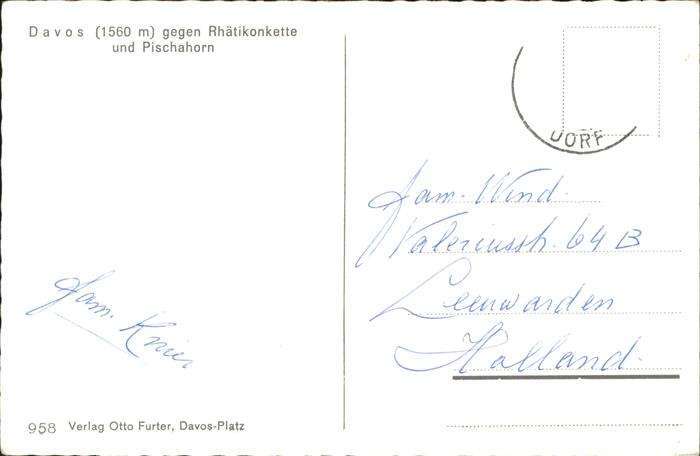 Davos (1560 m) gegen Rhätikonkette
und Pischahorn
DORF
Fam. Wind.
Valeriusstr. 64 B
Leeuwarden
Holland.
Fam. Knier
958 Verlag Otto Furter, Davos-Platz